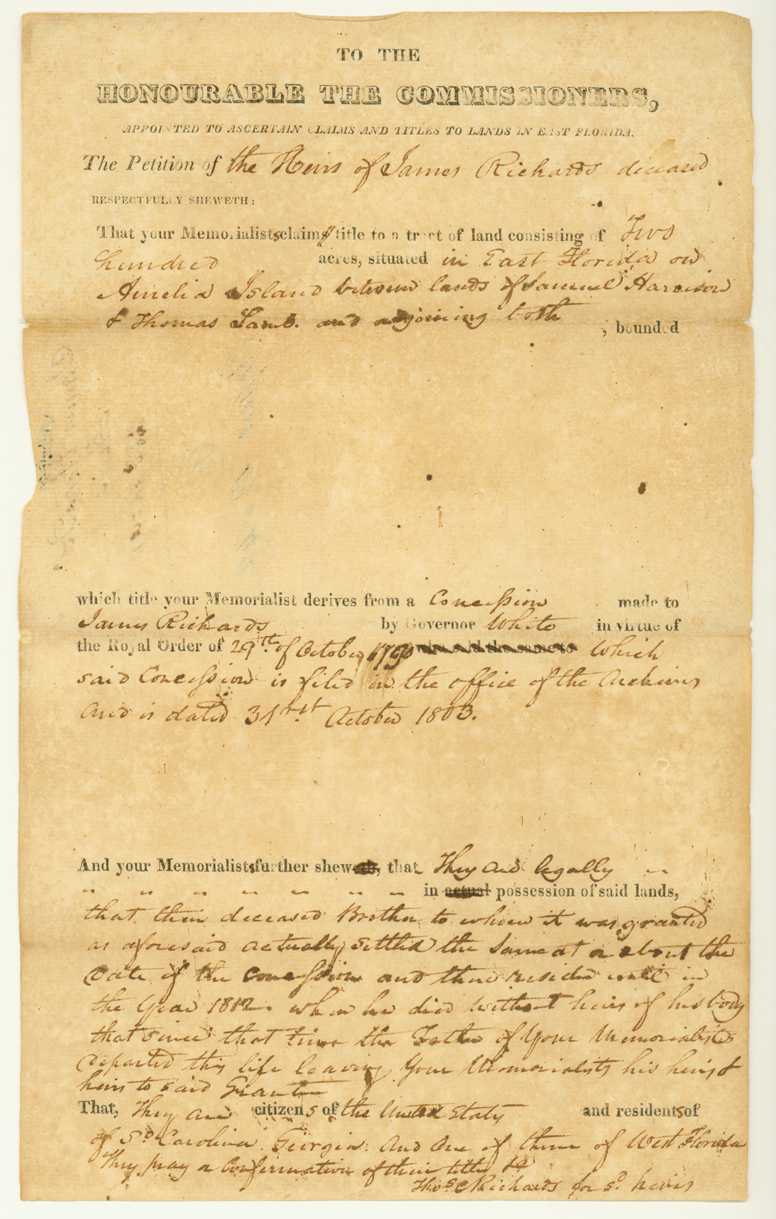 TO THE
HONOURABLE THE COMMISSIONERS,
APPOINTED TO ASCERTAIN CLAIMS AND TITLES TO LANDS IN EAST FLORIDA.
The Petition of the Heirs of James Richards deceased
RESPECTFULLY SHEWETH:
That your Memorialists claim title to a tract of land consisting of Two
hundred acres, situated in East Florida on
Amelia Island between lands of Samuel Harrison
& Thomas Lamb. and adjoining both ; bounded
which title your Memorialist derives from a Concession made to
James Richards by Governor White in virtue of
the Royal Order of 29th of October 1790 which
said Concession is filed in the office of the Archives
and is dated 31rst October 1803.
And your Memorialists further shew, that They are legally
in actual possession of said lands,
that their deceased Brother to whom it was granted
as aforesaid actually settled the same at or about the
date of the concession and there resided until in
the year 1812. when he died without heirs of his body
that since that time the Father of Your Memorialists
departed this life leaving Your Memorialists his heirs &
heirs to said Grantee
That, They are citizens of the United States and residents of
of So. Carolina, Georgia. And One of them of West Florida
They pray a Confirmation of their title &c
Thos. C Richards for sd. heirs